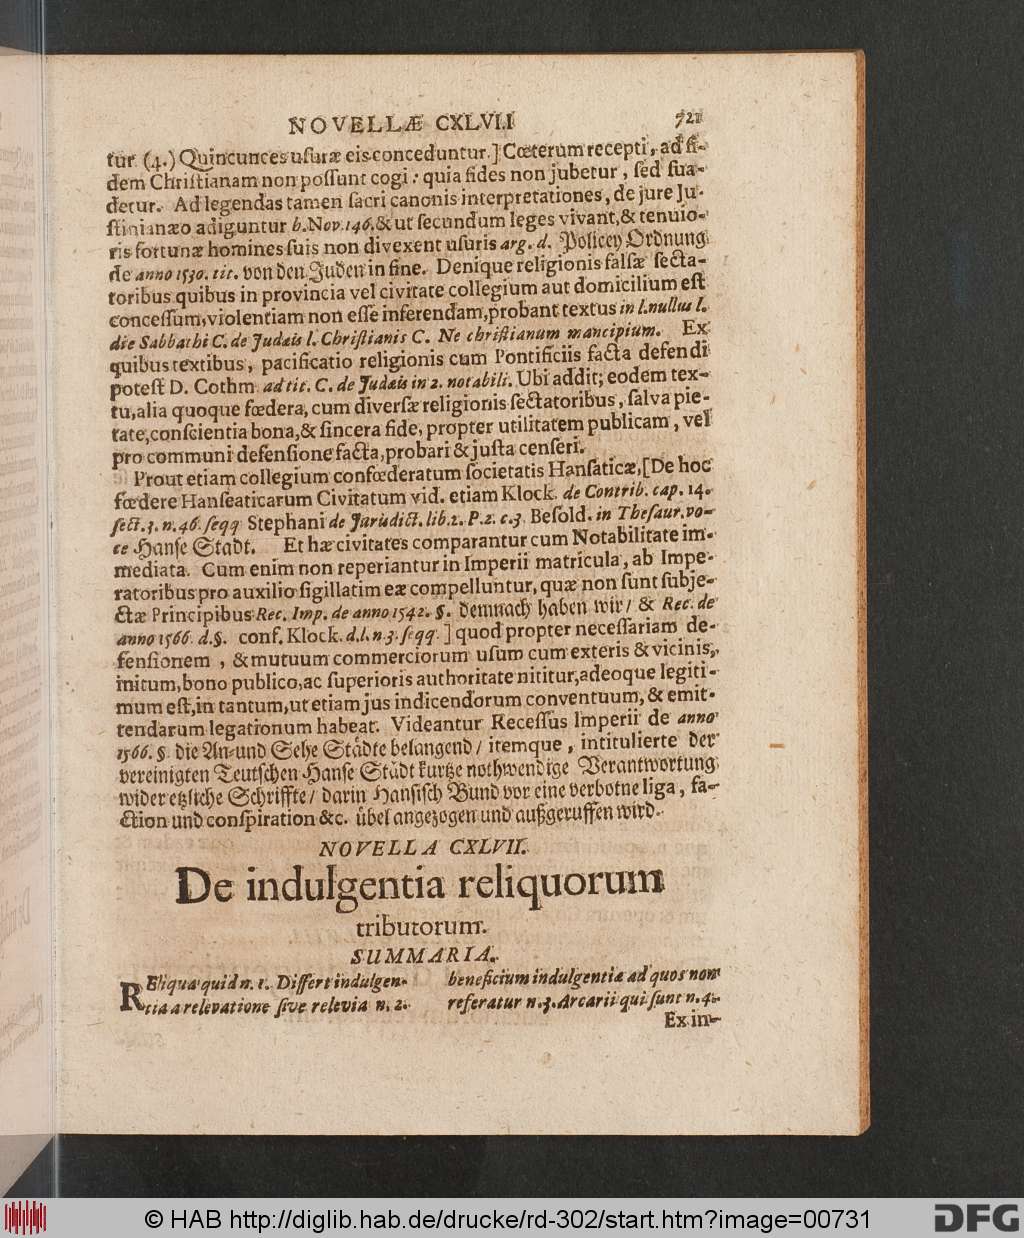 NOVELLÆ CXLVII 721
tur (4.) Quincunces uſuræ eis conceduntur.] Cœterum recepti, ad fi-
dem Chriſtianam non poſſunt cogi: quia fides non jubetur, ſed ſua-
detur. Ad legendas tamen ſacri canonis interpretationes, de jure Ju-
ſtinianæo adiguntur b. Nov. 146. & ut ſecundum leges vivant, & tenuio-
ris fortunæ homines ſuis non divexent uſuris arg. d. Policey Ordnung
de anno 1530. tit. von den Juden in fine. Denique religionis falſæ ſecta-
toribus quibus in provincia vel civitate collegium aut domicilium eſt
conceſſum, violentiam non eſſe inferendam, probant textus in l. nullus l.
die Sabbathi C. de Judæis l. Chriſtianis C. Ne chriſtianum mancipium. Ex
quibus textibus, pacificatio religionis cum Pontificiis facta defendi
poteſt D. Cothm ad tit. C. de Judæis in 2. notabili. Ubi addit; eodem tex-
tu, alia quoque fœdera, cum diverſæ religionis ſectatoribus, ſalva pie-
tate, conſcientia bona, & ſincera fide, propter utilitatem publicam, vel
pro communi defenſione facta, probari & juſta cenſeri.
Prout etiam collegium confœderatum ſocietatis Hanſaticæ, [De hoc
fœdere Hanſeaticarum Civitatum vid. etiam Klock. de Contrib. cap. 14.
ſect. 3. n. 46. ſeqq Stephani de Jurisdict. lib. 2. P. 2. c. 3 Beſold. in Theſaur. vo-
ce Hanſe Stadt. Et hæ civitates comparantur cum Notabilitate im-
mediata. Cum enim non reperiantur in Imperii matricula, ab Impe-
ratoribus pro auxilio ſigillatim eæ compelluntur, quæ non ſunt ſubje-
ctæ Principibus Rec. Imp. de anno 1542. §. demnach haben wir / & Rec. de
anno 1566. d. §. conf. Klock. d. l. n. 3. ſeqq. ] quod propter neceſſariam de-
fenſionem, & mutuum commerciorum uſum cum exteris & vicinis,
initum, bono publico, ac ſuperioris authoritate nititur, adeoque legiti-
mum eſt, in tantum, ut etiam jus indicendorum conventuum, & emit-
tendarum legationum habeat. Videantur Receſſus Imperii de anno
1566. §. die An- und Sehe Städte belangend / itemque, intitulierte der
vereinigten Teutſchen Hanſe Städt kurtze nothwendige Verantwortung
wider etzliche Schriffte / darin Hanſiſch Bund vor eine verbotne liga, fa-
ction und conſpiration &c. übel angezogen und außgeruffen wird.
NOVELLA CXLVII.
De indulgentia reliquorum
tributorum.
SUMMARIA.
REliqua quid n. 1. Differt indulgen-
tia a relevatione ſive relevia n. 2.
beneficium indulgentiæ ad quos non
referatur n. 3. Arcarii qui ſunt n. 4.
Ex in-
© HAB http://diglib.hab.de/drucke/rd-302/start.htm?image=00731
DFG